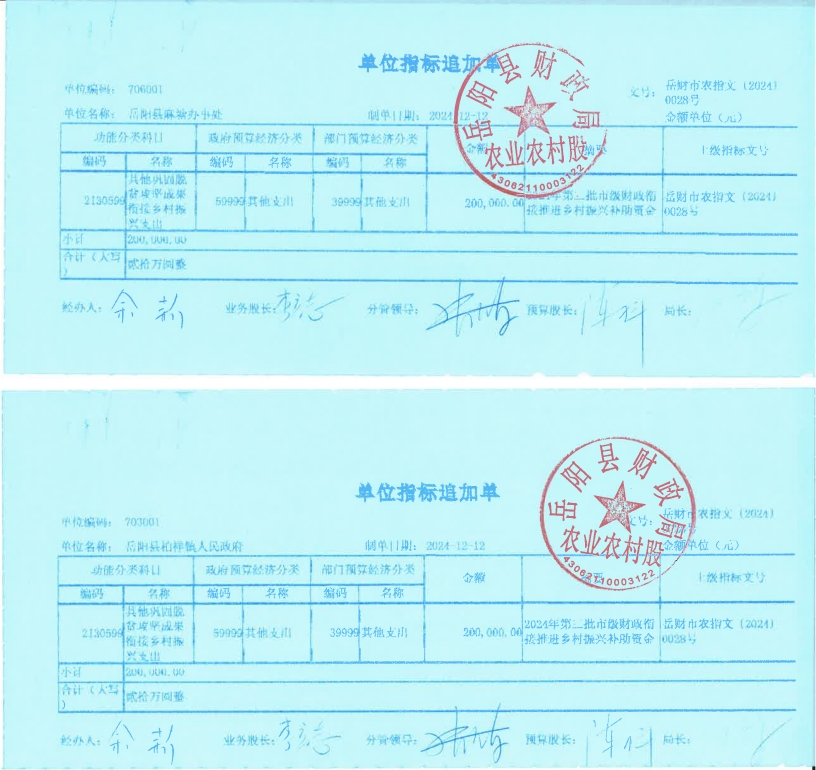 单位指标追加单
单位编码： 706001
文号： 岳财市农指文（2024）
0028号
单位名称： 岳阳县麻塘办事处
制单日期： 2024-12-12
金额单位（元）
岳阳县财政局
农业农村股
43062110003122
功能分类科目 政府预算经济分类 部门预算经济分类 金额 摘要 上级指标文号
编码 名称 编码 名称 编码 名称
2130599 其他巩固脱贫攻坚成果衔接乡村振兴支出 59999 其他支出 39999 其他支出 200,000.00 2024年第三批市级财政衔接推进乡村振兴补助资金 岳财市农指文（2024）0028号
小计 200,000.00
合计（大写） 贰拾万圆整
经办人： 余新 业务股长： 分管领导： 预算股长： 局长：
单位指标追加单
单位编码： 703001
文号： 岳财市农指文（2024）
单位名称： 岳阳县柏祥镇人民政府
制单日期： 2024-12-12
金额单位（元）
岳阳县财政局
农业农村股
43062110003122
功能分类科目 政府预算经济分类 部门预算经济分类 金额 摘要 上级指标文号
编码 名称 编码 名称 编码 名称
2130599 其他巩固脱贫攻坚成果衔接乡村振兴支出 59999 其他支出 39999 其他支出 200,000.00 2024年第三批市级财政衔接推进乡村振兴补助资金 岳财市农指文（2024）0028号
小计 200,000.00
合计（大写） 贰拾万圆整
经办人： 余新 业务股长： 分管领导： 预算股长： 局长：